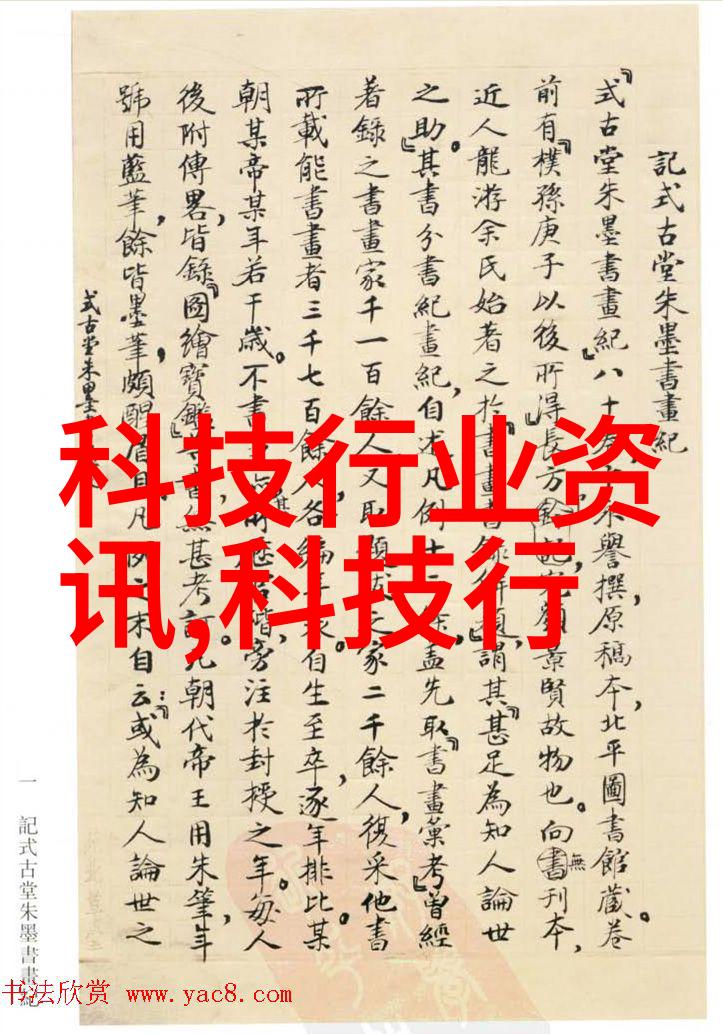 記式古堂朱墨書畫紀
『式古堂朱墨書畫紀』八十
譽撰,原稿本,北平圖書館藏。卷
前有『樸孫庚子以後所得』長方
景賢故物也。向無書刊本,
近人龍游余氏始著之於『書畫書錄解題』,謂其『甚足為知人論世
之助』。其書分書紀畫紀,自述凡例十二條,蓋先取『書畫彙考』曾經
著錄之書畫家千一百餘人,又取
家二千餘人,復采他書
所載能書畫者三千七百餘人,各編
自生至卒,逐年排比。某
朝某帝某年若干歲。不書
旁注於封授之年。每人
後附傳畧,皆錄『圖繪寶鑑』
無甚考訂。凡朝代帝王用朱筆,年
號用藍筆,餘皆墨筆,頗醒眉目。凡例之末自云:『或為知人論世之
式古堂朱墨書
科技行业资
讯,科技行
一 記式古堂朱墨書畫紀
书法欣赏 www.yac8.com